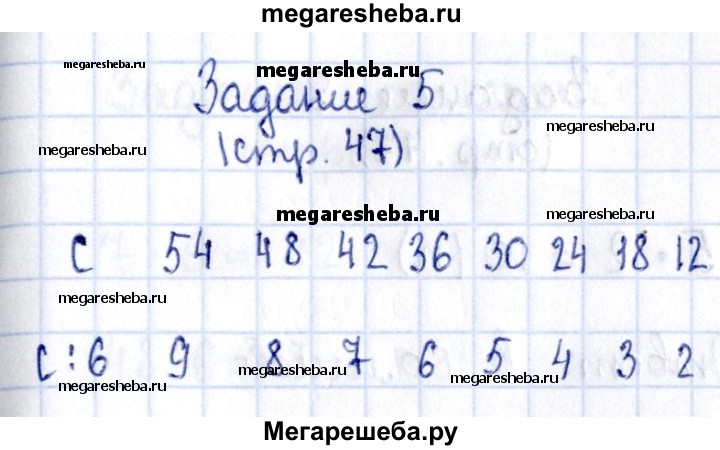 megaresheba.ru
megaresheba.ru
megaresheba.ru
Задание 5
megaresheba.ru
megaresheba.ru
(стр. 47)
megaresheba.ru
megaresheba.ru
с 54 48 42 36 30 24 18 12
megaresheba.ru
megaresheba.ru
с:6 9 8 7 6 5 4 3 2
megaresheba.ru
megaresheba.ru
megaresheba.ru
Мегарешеба.ру